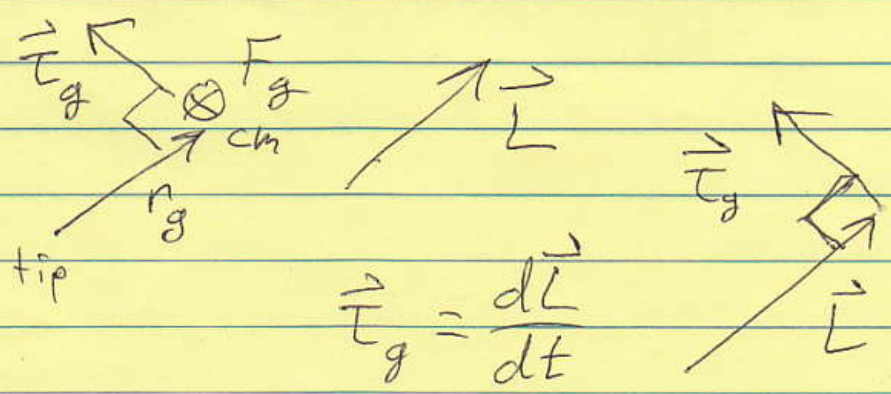 τ⃗g ⊗ Fg
cm
rg
tip
L⃗
τ⃗g = dL⃗/dt
τ⃗g
L⃗